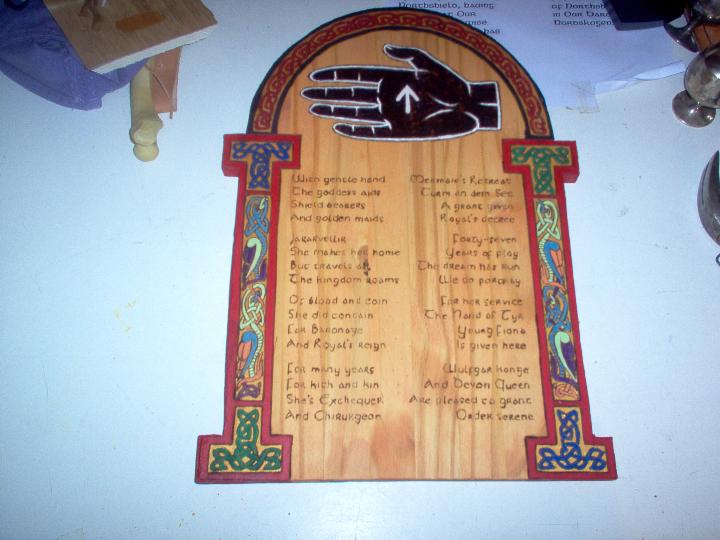 Northshield, having
Our
has
in Our
Nordskogen
With gentle hand
The goddess aids
Shield bearers
And golden maids
Jararvellir
She makes her home
But travels all
The kingdom roams
Of blood and coin
She did contain
For Baronage
And Royal's reign
For many years
For kith and kin
She's Exchequer
And Chirurgeon
Retreat
Turm an dem See
A grant given
Royal's decree
Forty-seven
Years of play
The dream has run
We do portray
For her service
The Hand of Tyr
Young Fiona
Is given here
Wulfgar konge
And Devon Queen
Are pleased to grant
Order serene